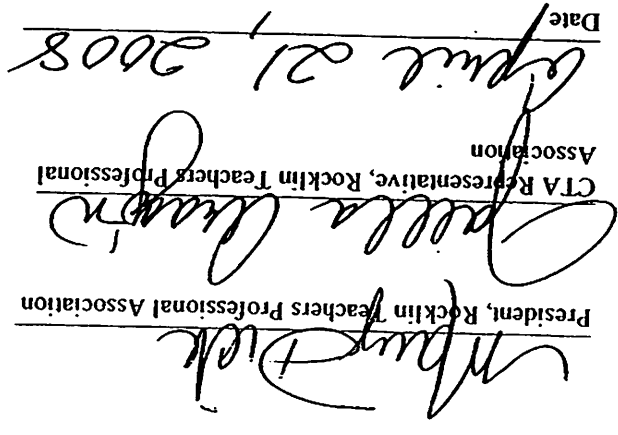 Mary Dick
President, Rocklin Teachers Professional Association
CTA Representative, Rocklin Teachers Professional
Association
April 21, 2008
Date